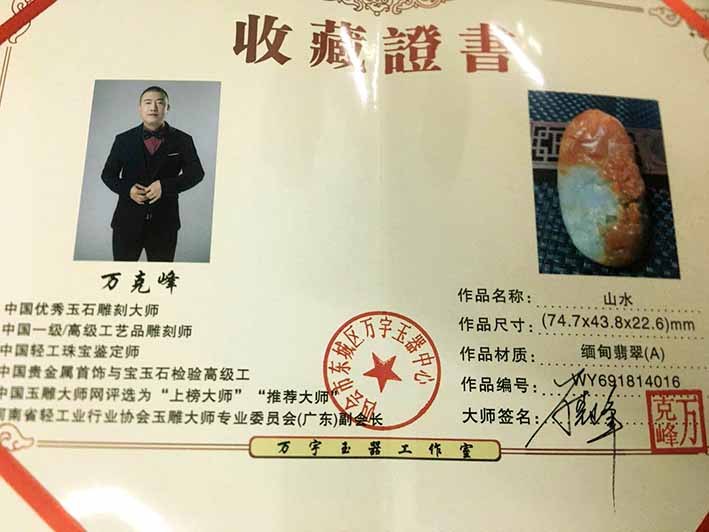 收藏證書
万克峰
中国优秀玉石雕刻大师
中国一级/高级工艺品雕刻师
中国轻工珠宝鉴定师
中国贵金属首饰与宝玉石检验高级工
中国玉雕大师网评选为“上榜大师”“推荐大师”
河南省轻工业行业协会玉雕大师专业委员会(广东)副会长
作品名称: 山水
作品尺寸: (74.7x43.8x22.6)mm
作品材质: 缅甸翡翠(A)
作品编号: WY691814016
大师签名:
万克峰
四会市东城区万宇玉器中心
万宇玉器工作室